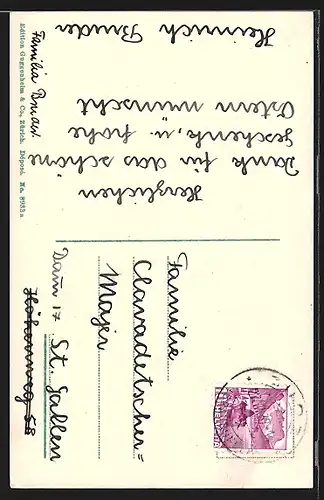 Herzlichen
Dank für das schöne
geschenk, u. frohe
Ostern wünscht
Heinrich Bruder
Familie Bruder.
Edition Guggenheim & Co., Zürich. Déposé. No. 8933a
Familie
Clavadetscher=
Majer
Dam 17 St. Gallen
Höhenweg 58
HELVETIA